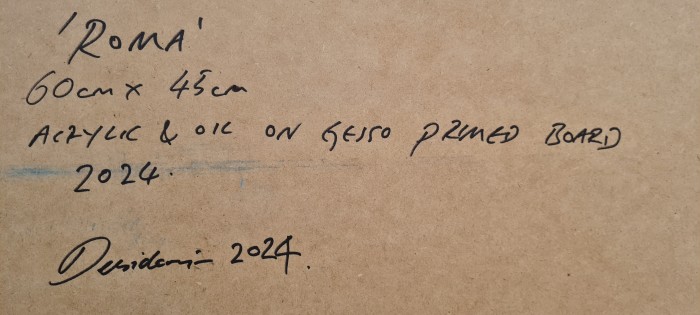 'ROMA'
60cm x 45cm
ACRYLIC & OIL ON GESSO PRIMED BOARD
2024.
2024.